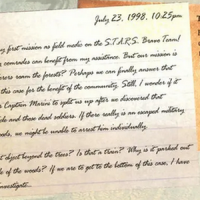 July 23, 1998, 10:25pm
y first mission as field medic on the S.T.A.R.S. Bravo Team!
comrades can benefit from my assistance. But our mission is
roam the forests? Perhaps we can finally answer that
this case for the benefit of the community. Still, I wonder if it
Captain Marini to split us up after we discovered that
and those dead soldiers. If there really is an escaped military
ods, we might be unable to arrest him individually.
t object beyond the trees? Is that a train? Why is it parked out
of the woods? If we are to get to the bottom of this case, I have
investigate...